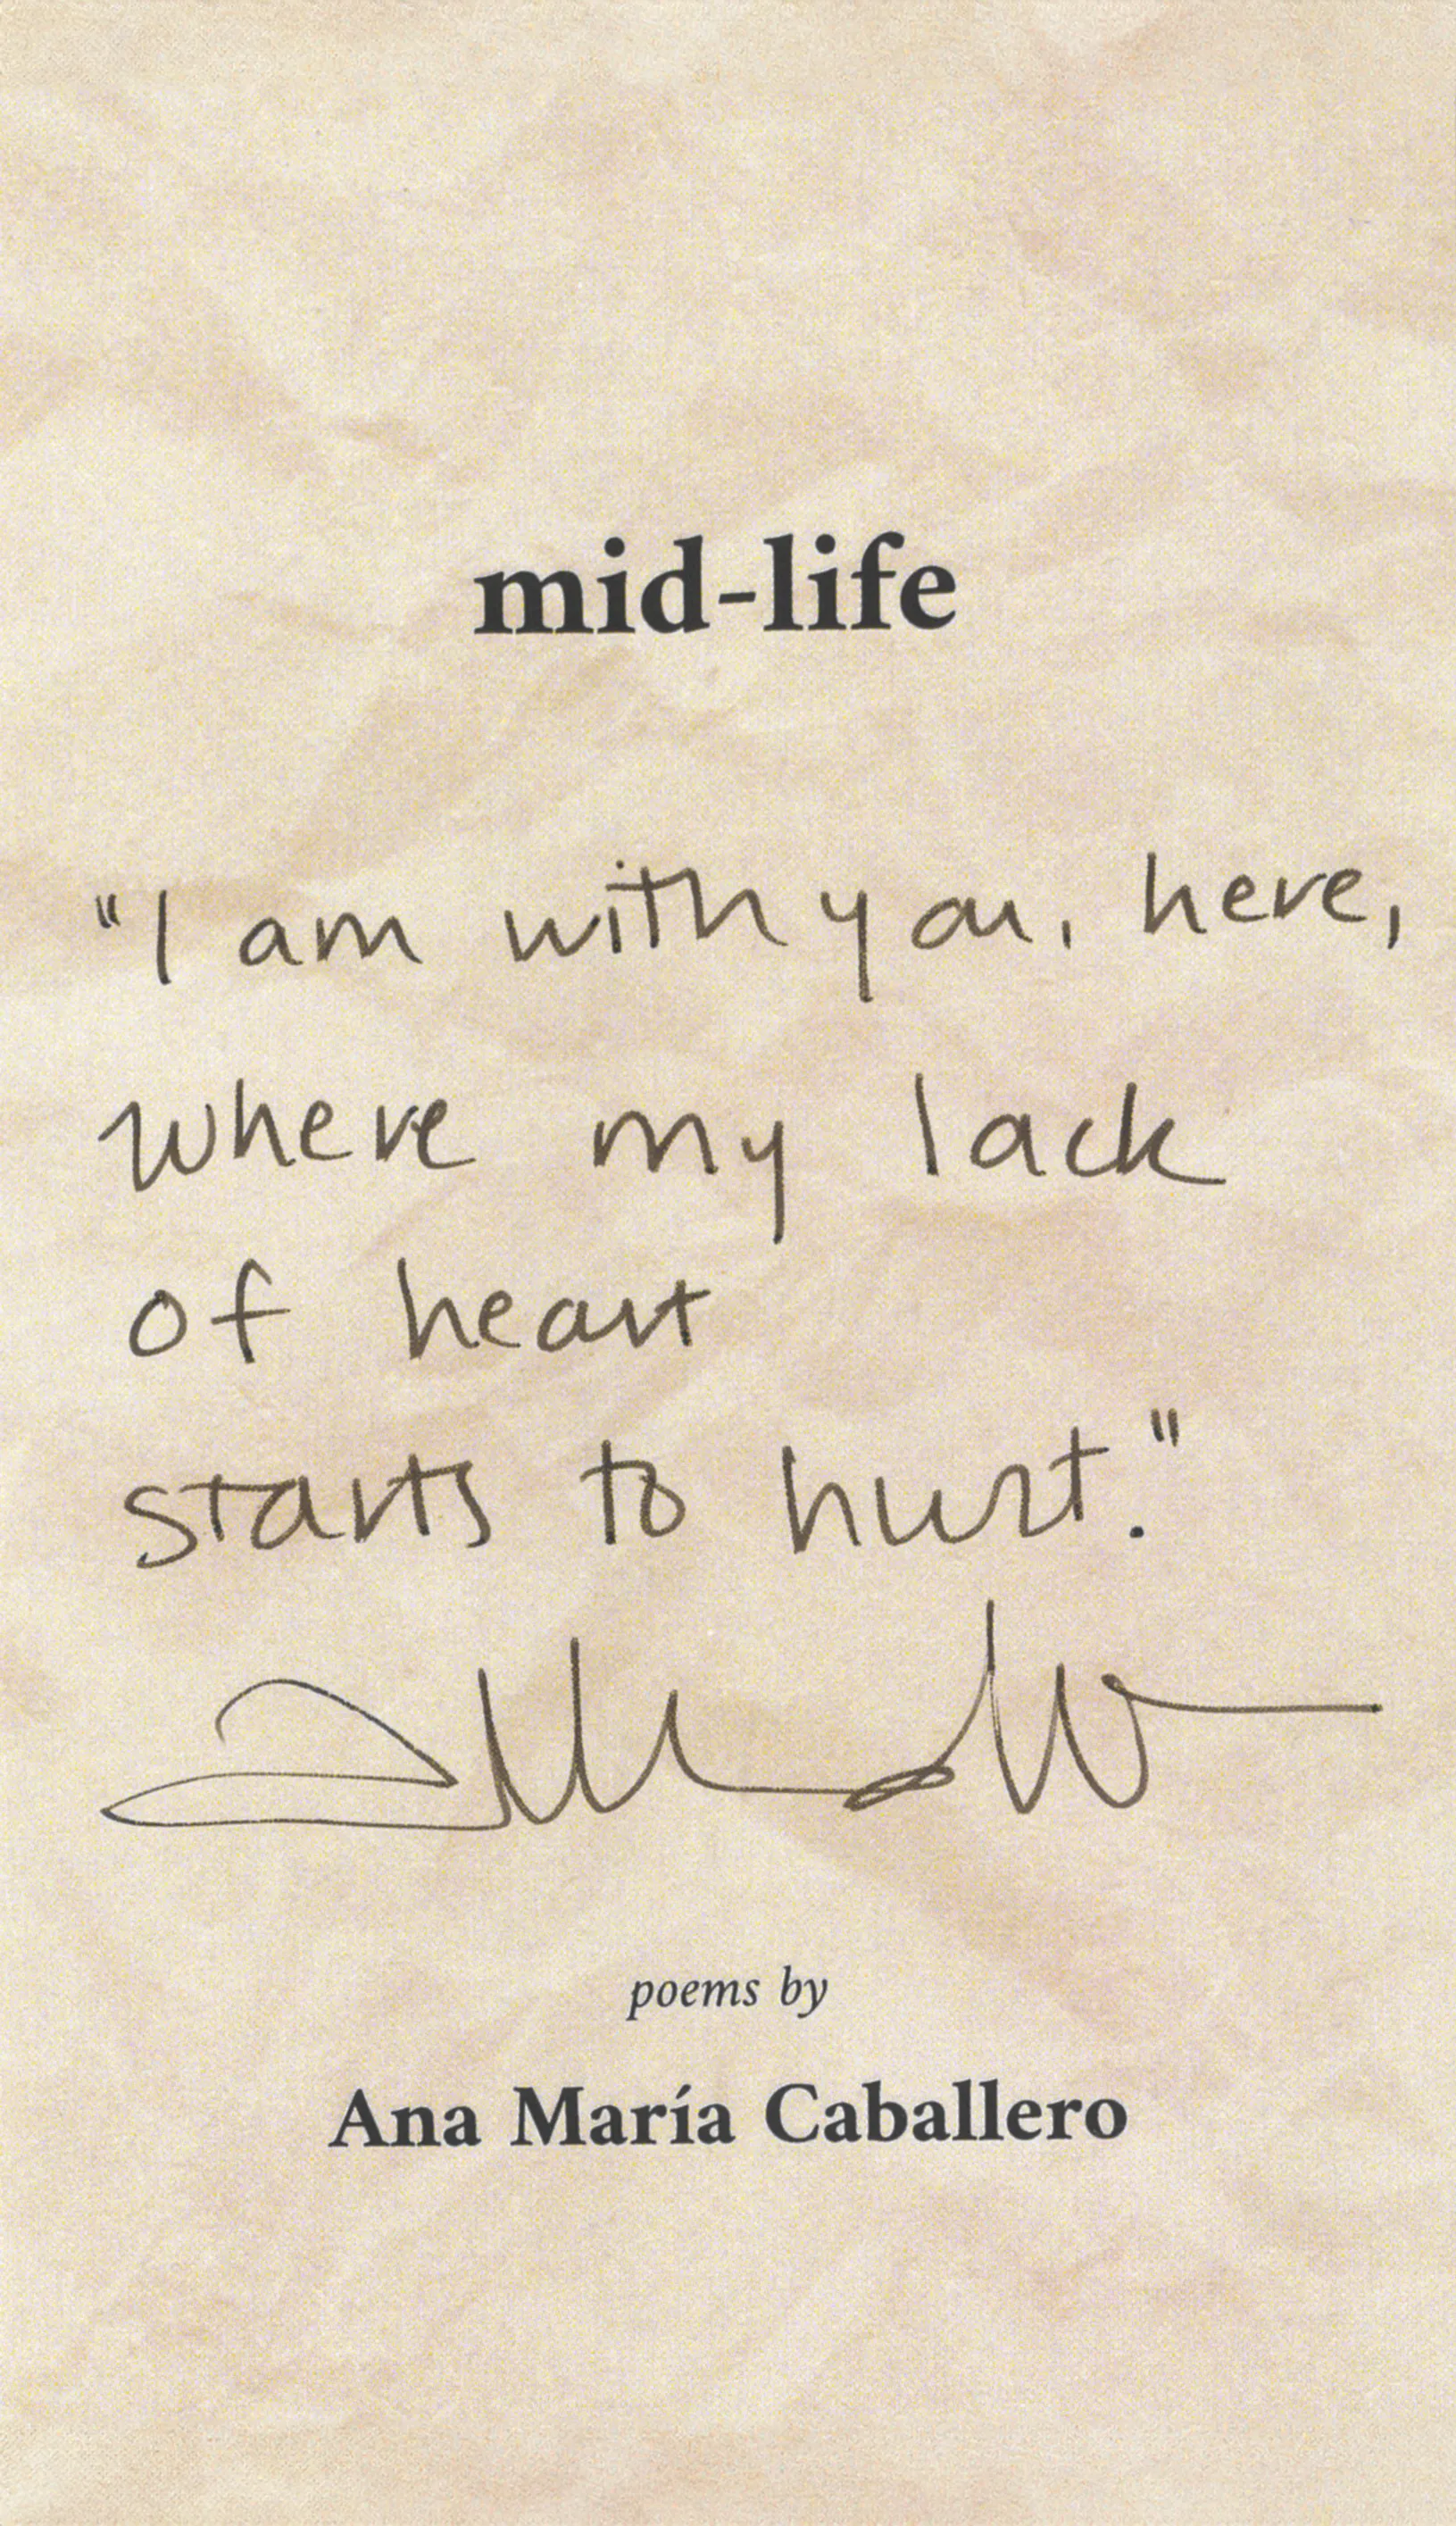 mid-life
"I am with you, here,
where my lack
of heart
starts to hurt."
poems by
Ana María Caballero